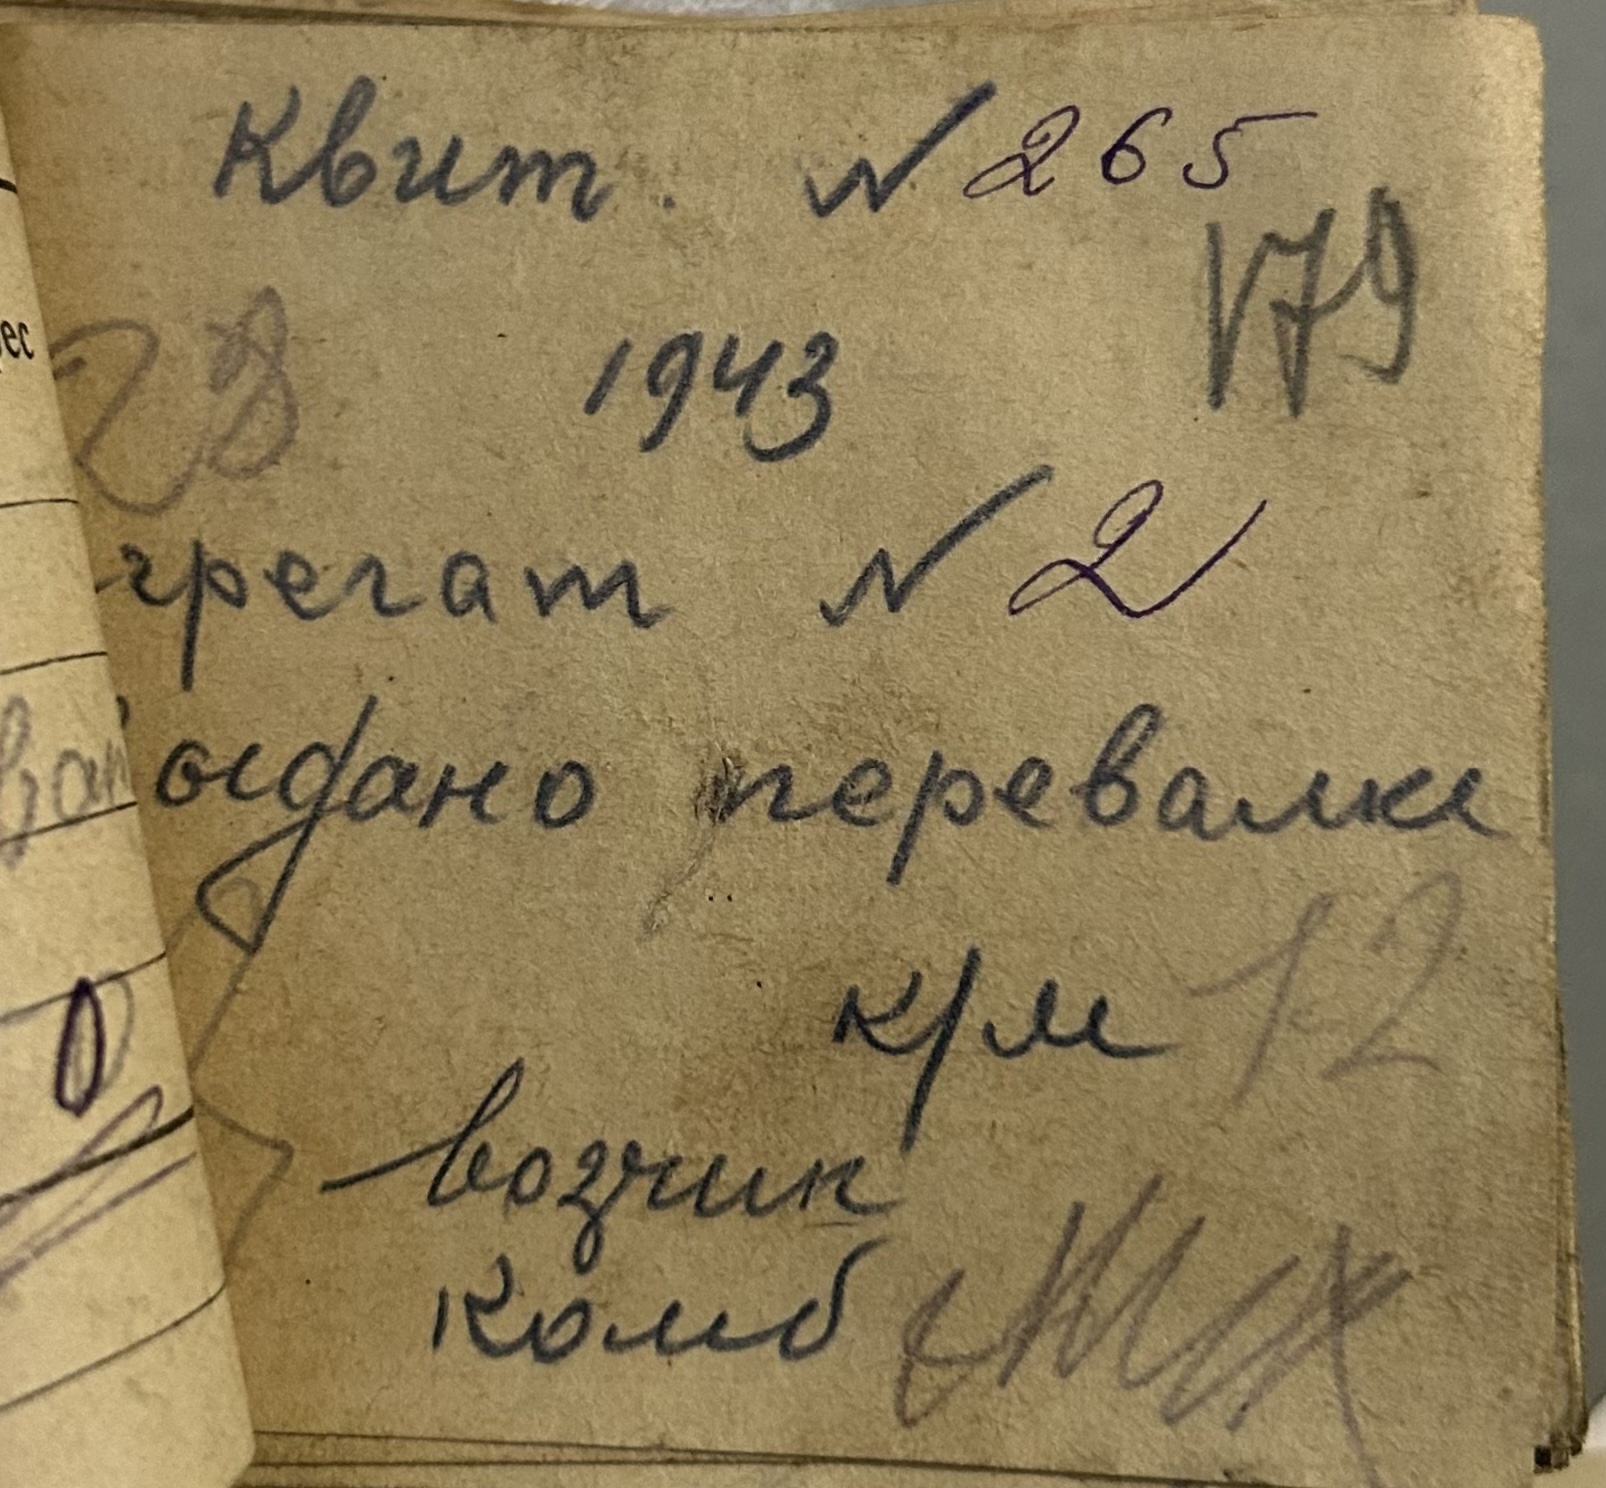 Квит. № 265
179
28 1943
грегат № 2
оздано перевалке
к/м 12
возчик
Комб